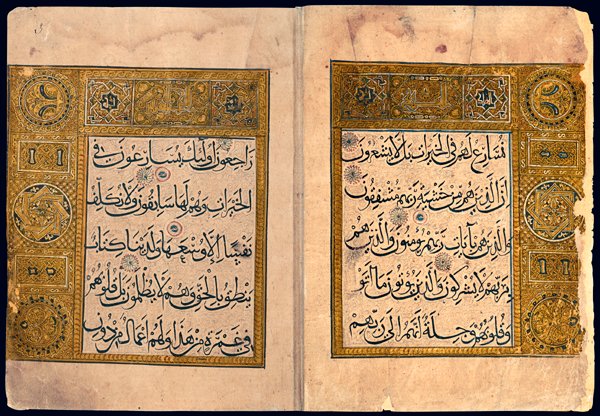 نسارع لهم في الخيرات بل لا يشعرون
ان الذين هم من خشية ربهم مشفقون
والذين هم بآيات ربهم يؤمنون والذين هم
بربهم لا يشركون والذين يؤتون ما آتوا
وقلوبهم وجلة انهم الى ربهم
راجعون اولئك يسارعون في
الخيرات وهم لها سابقون ولا نكلف
نفسا الا وسعها ولدينا كتاب
ينطق بالحق وهم لا يظلمون بل قلوبهم
في غمرة من هذا ولهم اعمال من دون